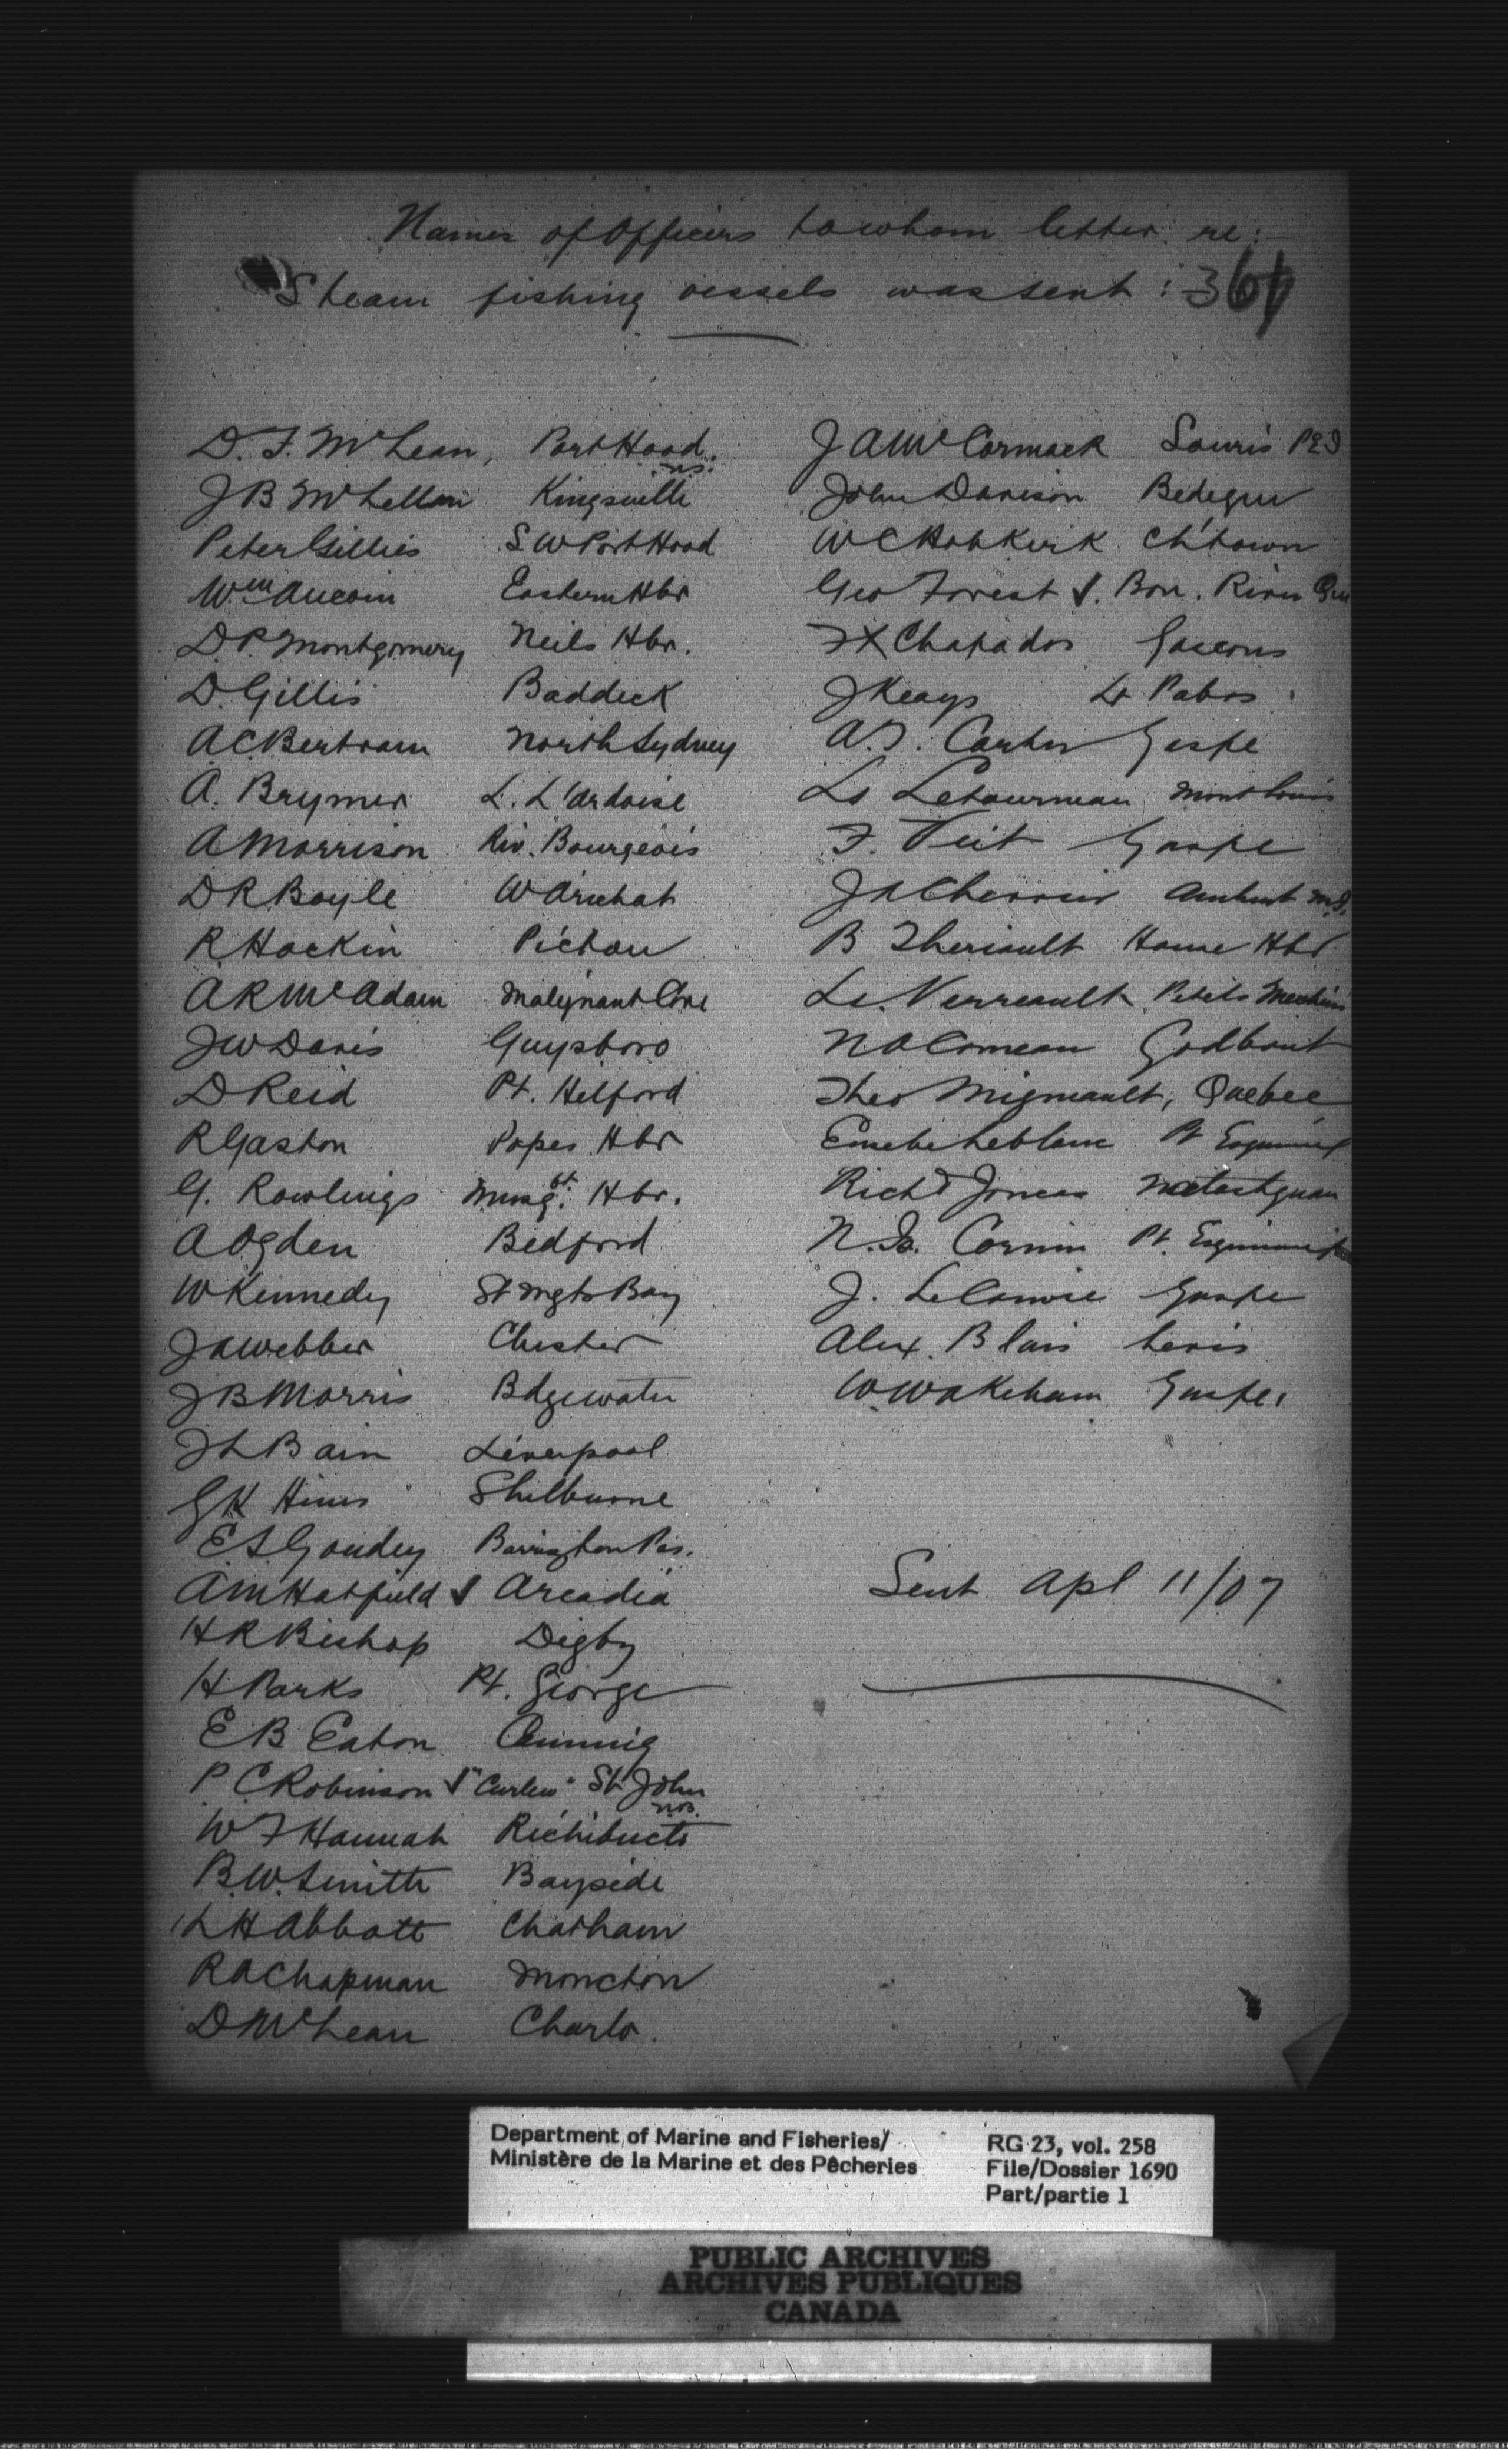 Names of Officers to whom letter re:
Steam fishing vessels was sent: 361
D. F. McLean, Port Hood. N.S.
J B McLellan Kingsville
Peter Gillies S W Port Hood
Wm Aucoin Eastern Hbr
D. P. Montgomery Neils Hbr.
D. Gillis Baddeck
A C Bertram North Sydney
A. Brymer L. L'ardoise
A Morrison Riv. Bourgeois
D R Boyle W Arichat
R. Hockin Pictou
A R McAdam Malignant Cove
J W Davis Guysboro
D Reid Pt. Hilford
R Gaston Popes Hbr
G. Rowlings Musqt. Hbr.
A Ogden Bedford
W Kennedy St Mgts Bay
J A Webber Chester
J B Morris Bdgewater
J L Bain Liverpool
G H Hines Shelburne
E. S. Goudey Barrington Pas.
A M Hatfield Arcadia
H R Bishop Digby
H Parks Pt. George
E B Eaton Canning
P. C Robinson "Curlew" St John N.B.
W F Hannah Richibucto
B. W. Smith Bayside
L H Abbott Chatham
R A Chapman Moncton
D McLean Charlo.
J A McCormack Souris P E I
John Davison Bedeque
W C Hobkirk Ch'town
Geo Forrest Bon. River
F X Chapados Gascons
J Keays Pabos
A. J. Carter Gaspe
Ls Letourneau Mont Louis
F. Veit Gaspe
Amherst M.I.
B Theriault House Hbr
Ls. Verreault Petits Mechins
N A Comeau Godbout
Theo Migneault, Quebec
Eusebe Leblanc Pt Esquimaux
Richd Joncas Natashquan
N. Js. Cormier Pt. Esquimaux
J. LeCouvie Gaspe
Alex. Blais Levis
W. Wakeham Gaspe.
Sent Apl 11/07
Department of Marine and Fisheries/
Ministère de la Marine et des Pêcheries
RG 23, vol. 258
File/Dossier 1690
Part/partie 1
PUBLIC ARCHIVES
ARCHIVES PUBLIQUES
CANADA